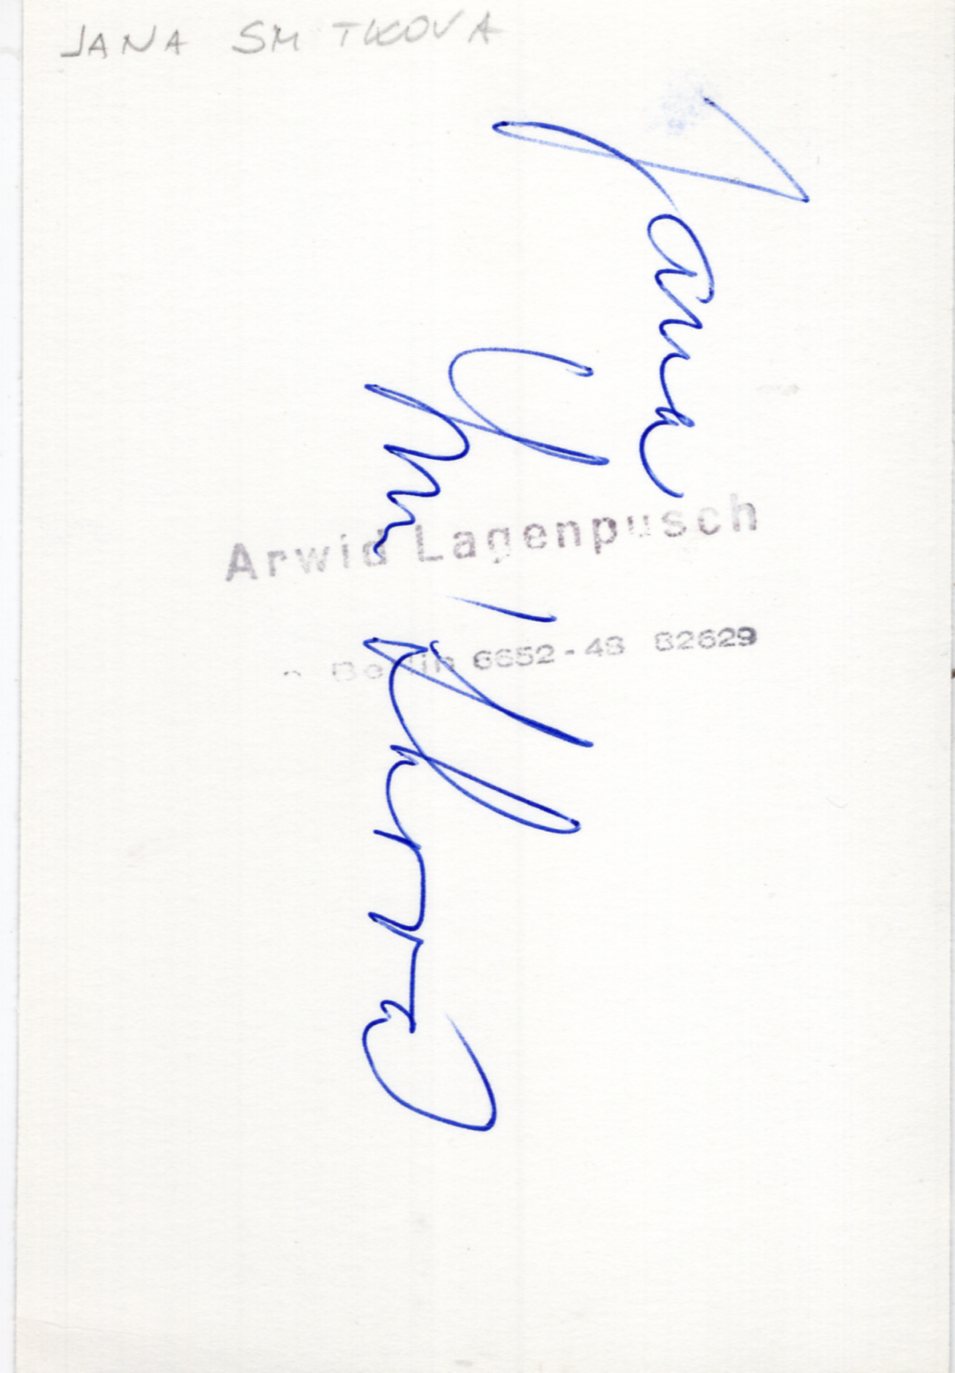 JANA SMITKOVA
Jana
Smitkova
Arwid Lagenpusch
Berlin 6652-48 82629